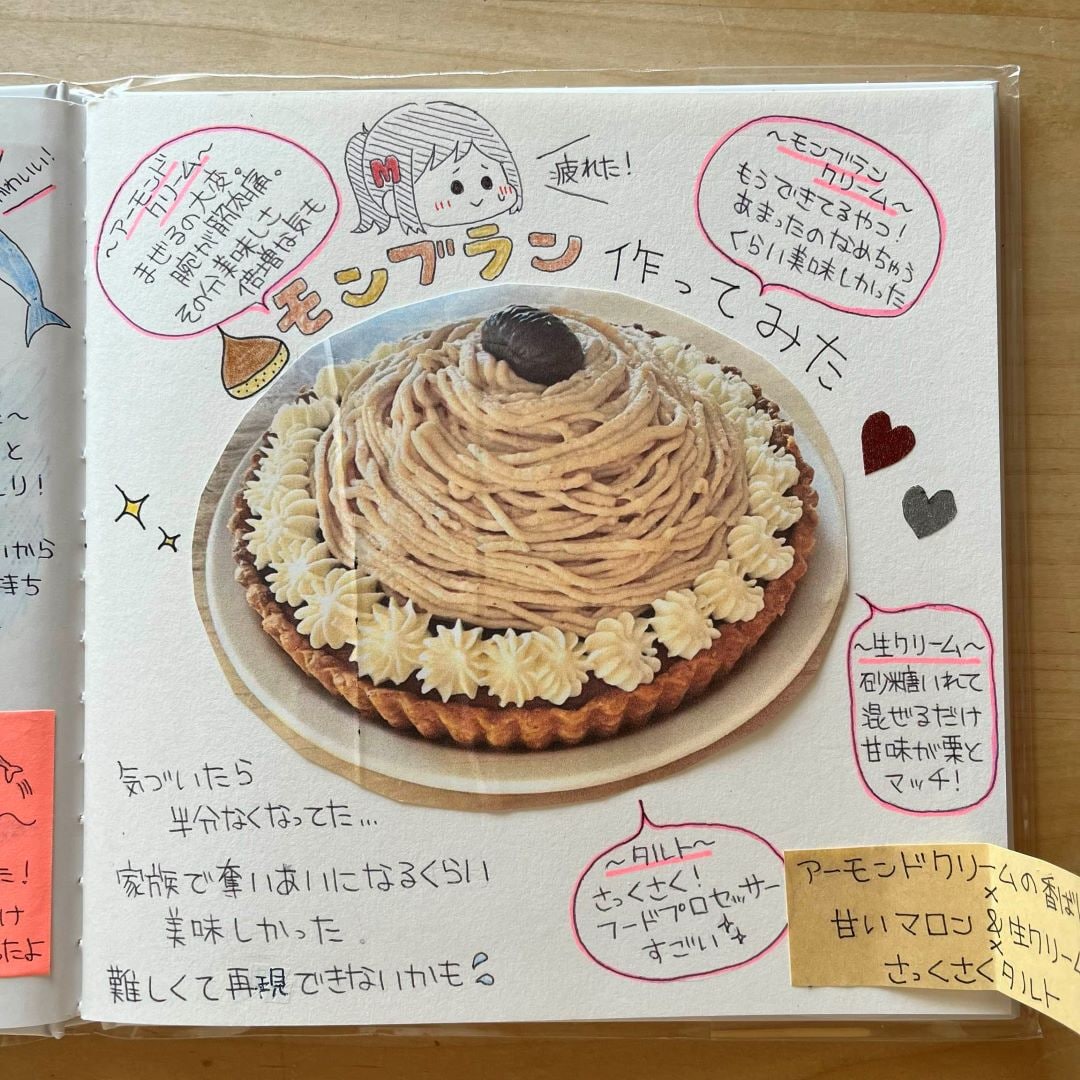 かわいい!
～アーモンド
クリーム～
まぜるの大変。
腕が筋肉痛。
その分美味しさ
倍増な気も
M
疲れた!
～モンブラン
クリーム～
もうできてるやつ!
あまったのなめちゃう
くらい美味しかった
モンブラン作ってみた
～生クリーム～
砂糖いれて
混ぜるだけ
甘味が栗と
マッチ!
気づいたら
半分なくなってた…
家族で奪いあいになるくらい
美味しかった。
難しくて再現できないかも
～タルト～
さっくさく!
フードプロセッサー
すごい
アーモンドクリームの香ば
×
甘いマロン&生クリーム
×
さっくさくタルト
～
と
り!
から
持ち
～
た!
け
たよ